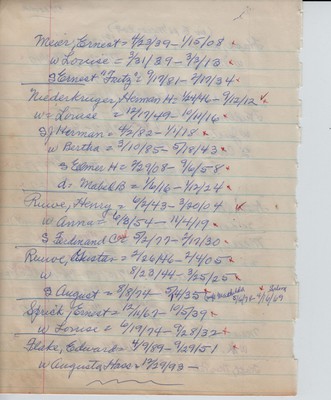 Meier, Ernest = 4/23/39 - 1/15/08
w Louise = 3/31/39 - 3/3/13
S Ernest "Fritz" = 9/17/81 - 2/19/34
Niederkruger, Herman H = 1/24/46 - 9/12/12
w = Louise = 12/17/49 - 10/10/16
S J Herman = 9/2/82 - 1/1/18
w Bertha = 3/10/85 - 5/18/43
S Elmer H = 2/29/08 - 9/6/58
d = Mabel B = 1/6/16 - 1/12/24
Ruwe, Henry = 6/2/43 - 3/20/04
w Anna = 6/3/54 - 11/4/19
S Ferdinand C = 5/2/77 - 2/17/30
Ruwe, Gustav = 2/26/46 - 2/4/05
w 8/23/44 - 3/25/25
S August = 5/8/74 - 5/4/35 w Mathilda
5/6/76 - 9/10/69
Spuck, Ernst = 7/10/67 - 10/5/39
w Louise = 6/19/74 - 9/28/32
Flake, Edward = 4/9/89 - 9/29/51
w Augusta Hass = 12/29/93 -